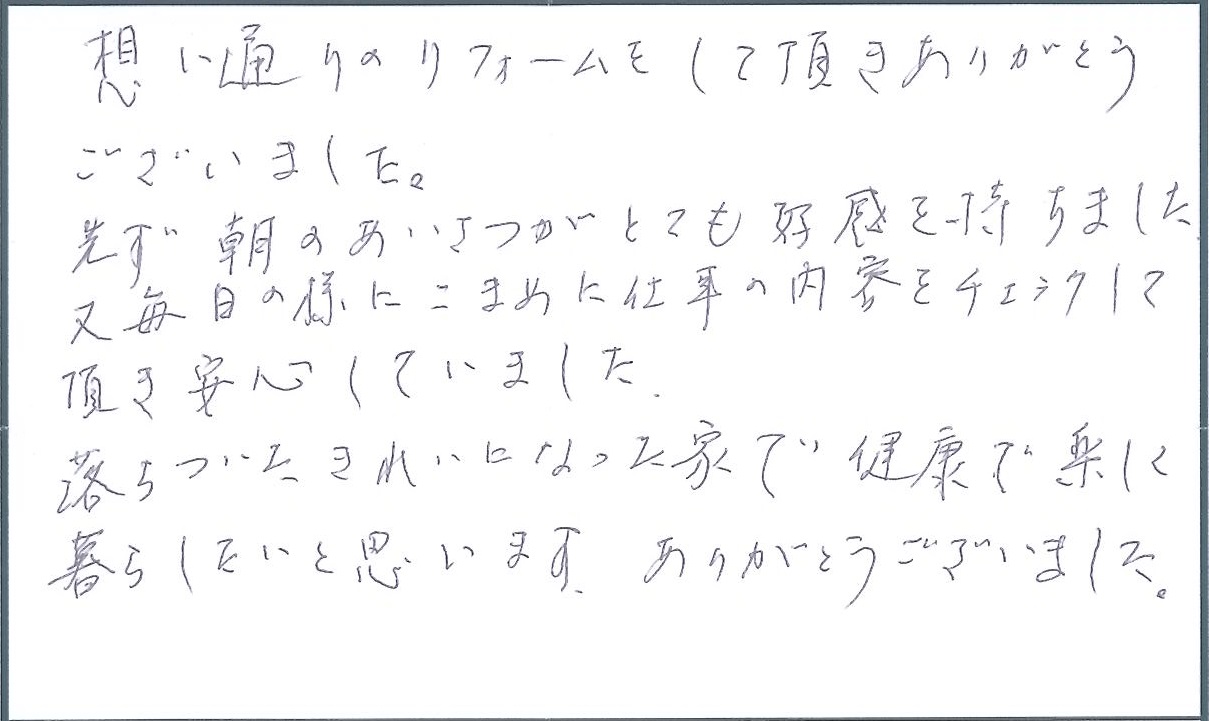 想い通りのリフォームをして頂きありがとう
ございました。
先ず朝のあいさつがとても好感を持ちました
又毎日の様にこまめに仕事の内容をチェックして
頂き安心していました.
落ちついたきれいになった家で健康で楽しく
暮らしたいと思います. ありがとうございました。